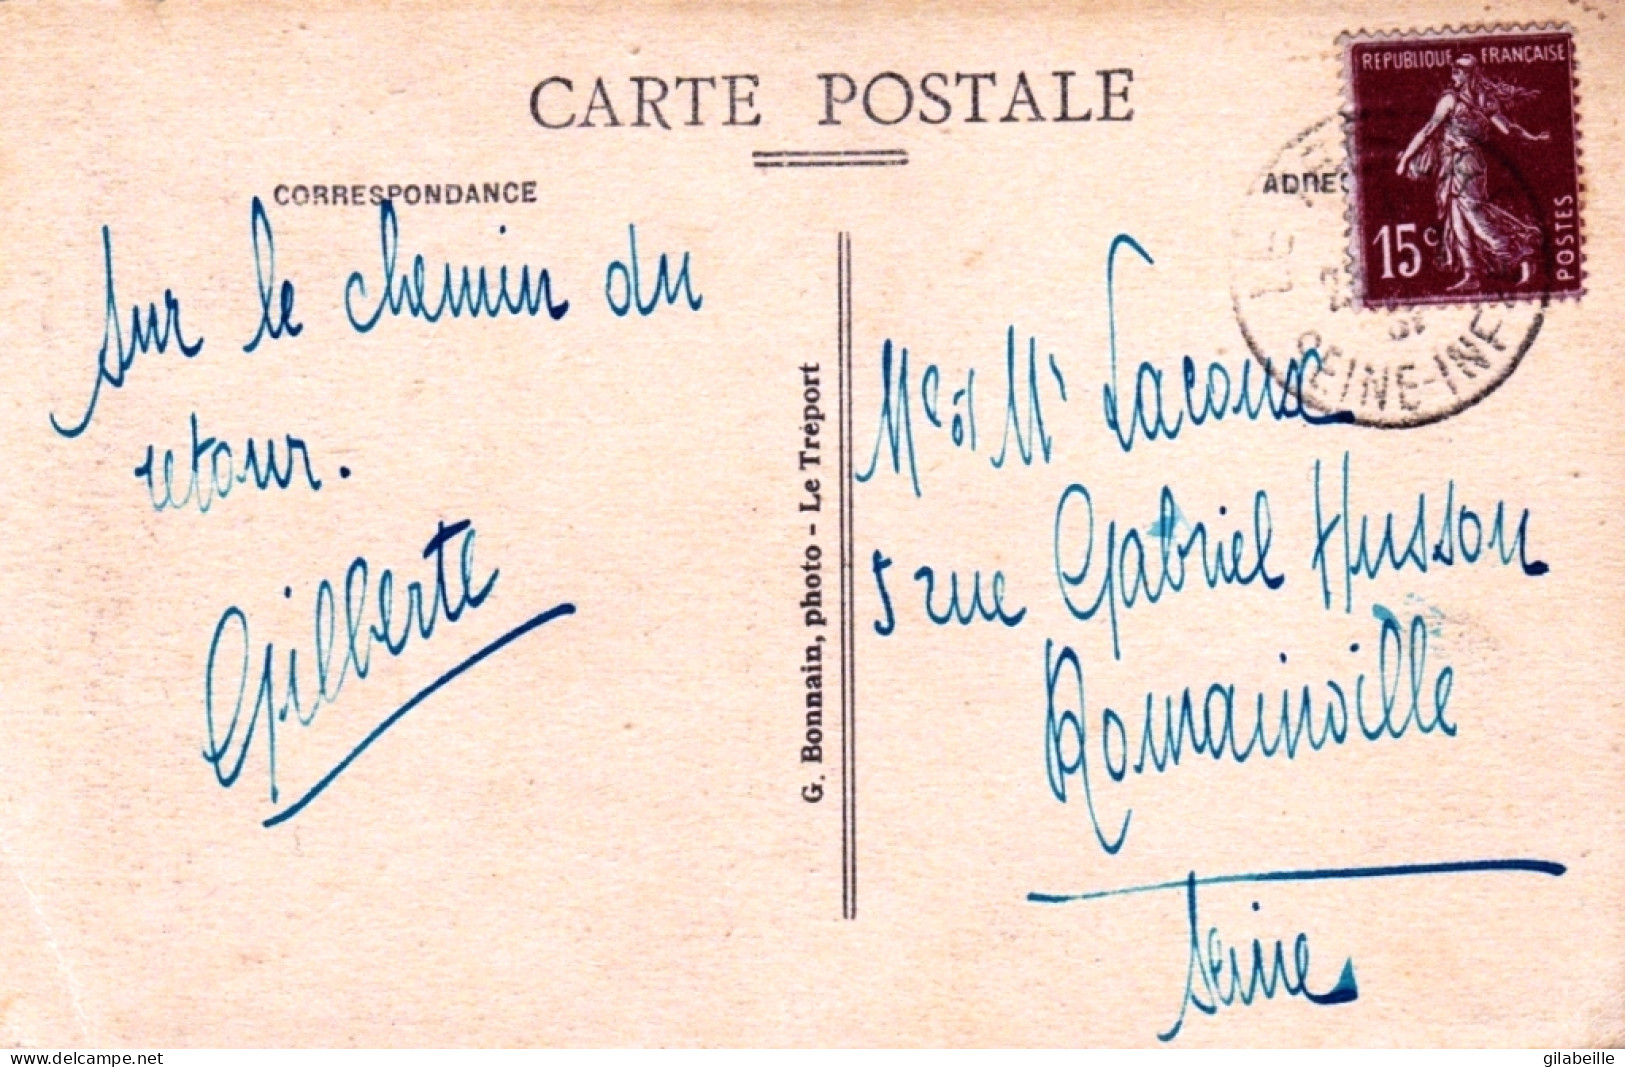 CARTE POSTALE
CORRESPONDANCE
Sur le chemin du
retour.
Gilberte
G. Bonnain, photo - Le Tréport
REPUBLIQUE FRANÇAISE
15c
POSTES
LE
SEINE-INF
Mr et Mme
5 rue Gabriel Husson
Romainville
Seine
www.delcampe.net
gilabeille